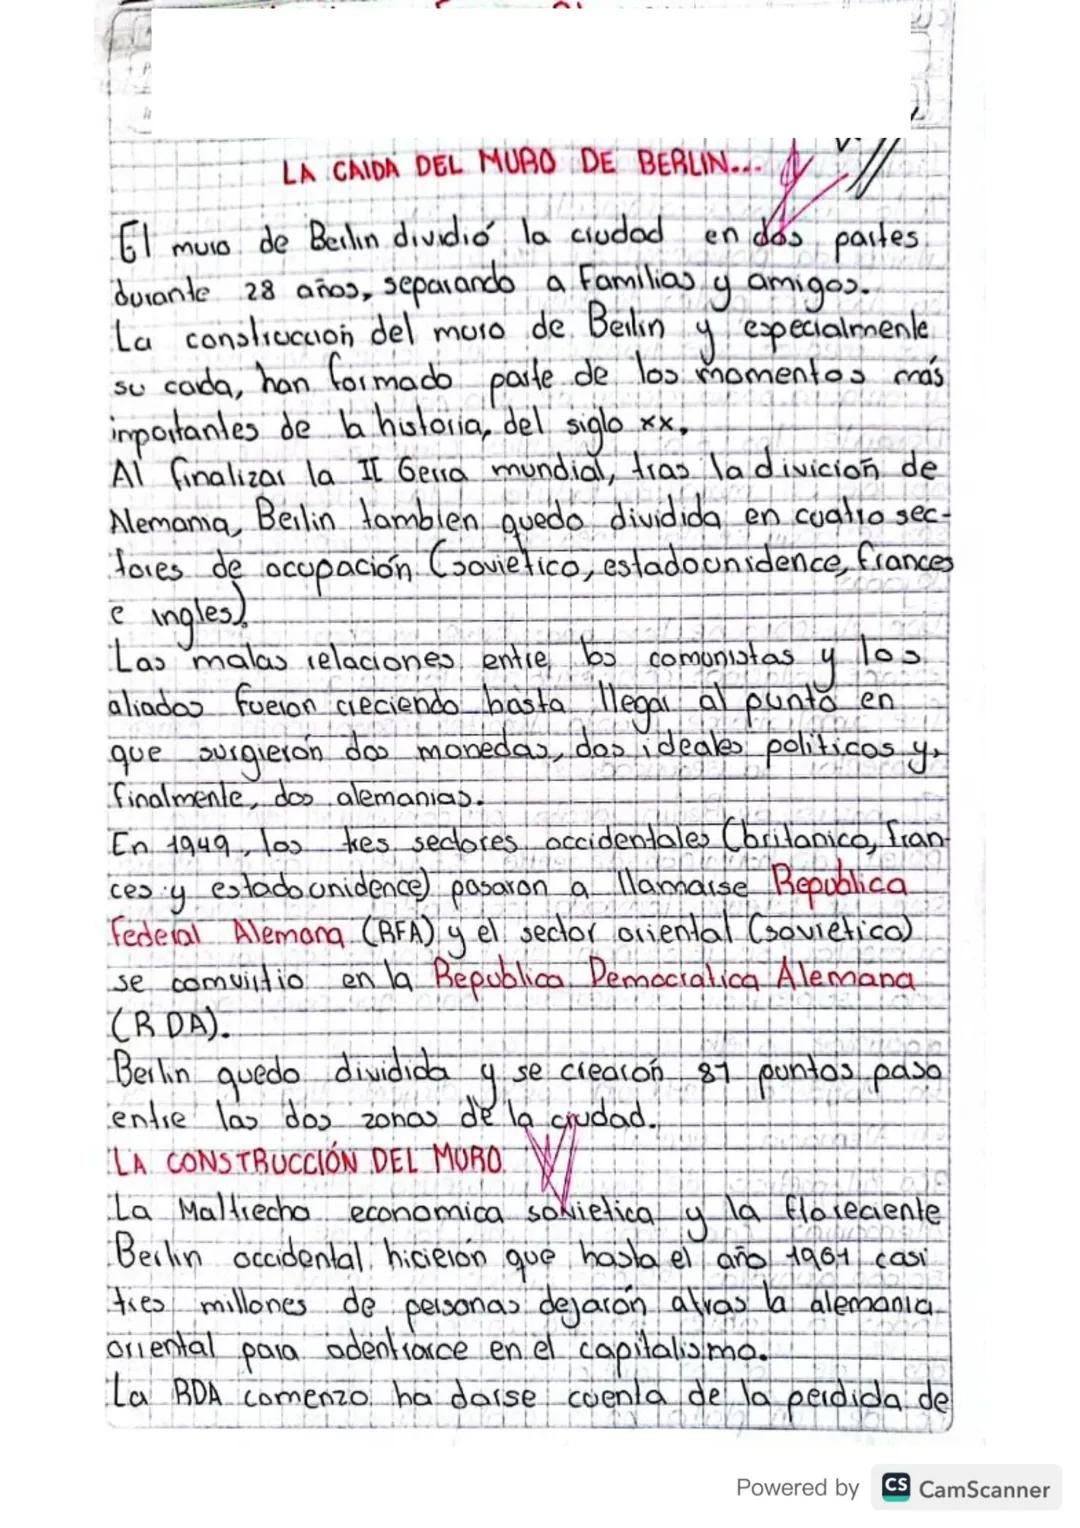 LA CAIDA DEL MURO DE BERLIN...
El muro de Berlin dividió la ciudad en dos partes
durante 28 años, separando a Familias y amigos.
La construccion del muro de Berlin y especialmente
su caida, han formado parte de los momentos más
inportantes de la historia, del siglo xx,
Al finalizar la II Gerra mundial, tras la divicion de
Alemania, Berlin tambien quedo dividida en cuatro sec-
tores de ocupación (sovietico, estadounidence, frances
e ingles).
Las malas relaciones entre los comunistas y los
aliados fueron creciendo hasta llegar al punto en
que surgierón dos monedas, dos ideales politicos y,
finalmente, dos alemanias.
En 1949, los tres sectores occidentales (britanico, fran-
ces y estadounidence) pasaron a llamarse Republica
Federal Alemana (RFA) y el sector oriental (sovietico)
se comvirtio en la Republica Democratica Alemana
(RDA).
Berlin quedo dividida y se crearón 81 puntos paso
entre las dos zonas de la ciudad.
LA CONSTRUCCIÓN DEL MURO.
La Maltrecha economica sovietica y la floreciente
Berlin occidental hicierón que hasta el año 1961 casi
tres millones de personas dejarón atras la alemania
oriental para adentrarce en el capitalismo.
La RDA comenzo ha darse cuenta de la perdida de
Powered by CS CamScanner